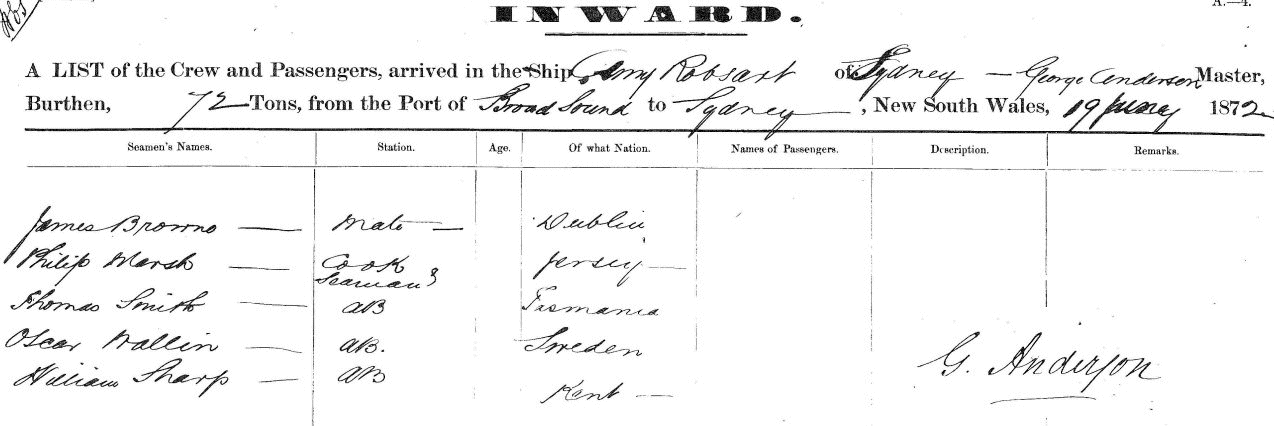 A.—4.
INWARD.
A LIST of the Crew and Passengers, arrived in the Ship Amy Robsart of Sydney — George Anderson Master,
Burthen, 72 Tons, from the Port of Broad Sound to Sydney —, New South Wales, 19 June 1872
Seamen's Names. Station. Age. Of what Nation. Names of Passengers. Description. Remarks.
James Browne — Mate — Dublin
Philip Marsh — Cook Jersey —
Seaman
Thomas Smith — AB Tasmania
Oscar Wallin — AB. Sweden
William Sharp — AB Kent —
G. Anderson